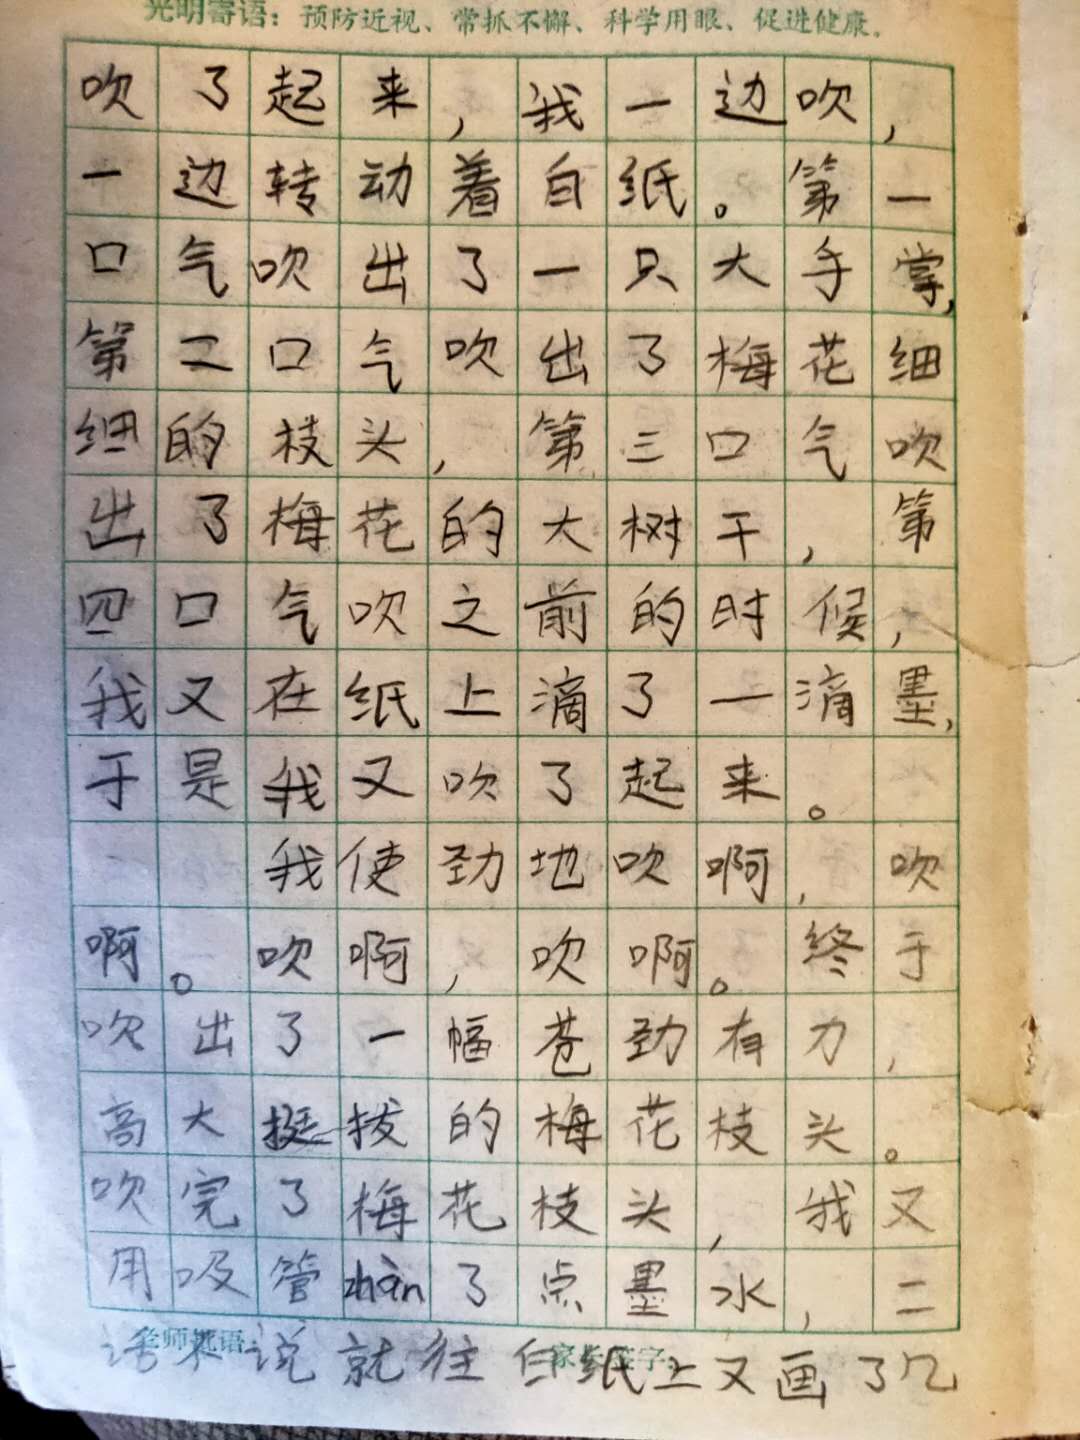 光明寄语：预防近视、常抓不懈、科学用眼、促进健康。
吹了起来，我一边吹，
一边转动着白纸。第一
口气吹出了一只大手掌，
第二口气吹出了梅花细
细的枝头，第三口气吹
出了梅花的大树干，第
四口气吹之前的时候，
我又在纸上滴了一滴墨，
于是我又吹了起来。
我使劲地吹啊，吹
啊。吹啊，吹啊。终于
吹出了一幅苍劲有力，
高大挺拔的梅花枝头。
吹完了梅花枝头，我又
用吸管zhàn了点墨水，二
老师批语： 家长签字：
话不说就往白纸上又画了几